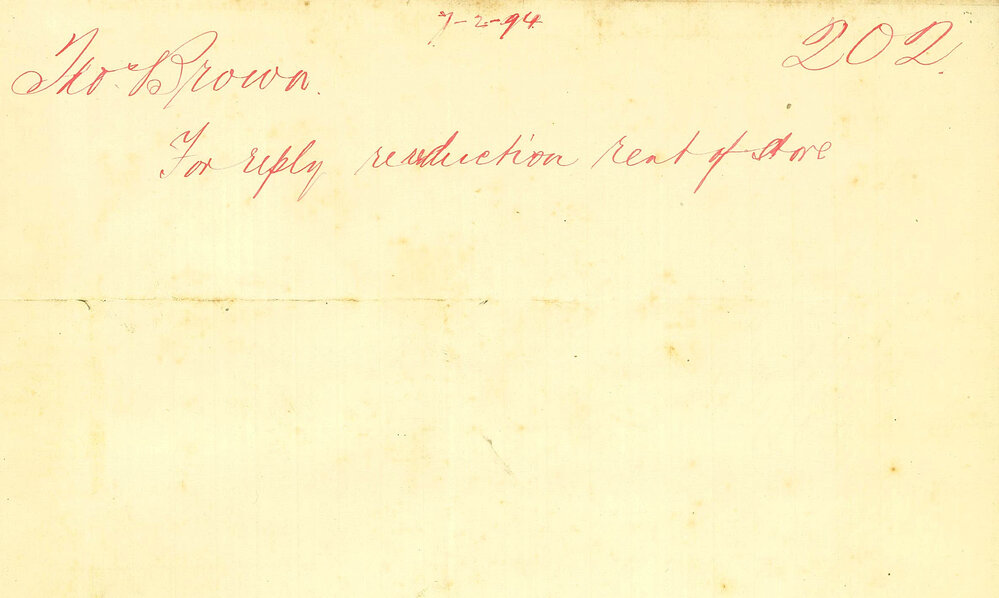 7-2-94
202.
Thos Brown.
For reply reduction rent of store